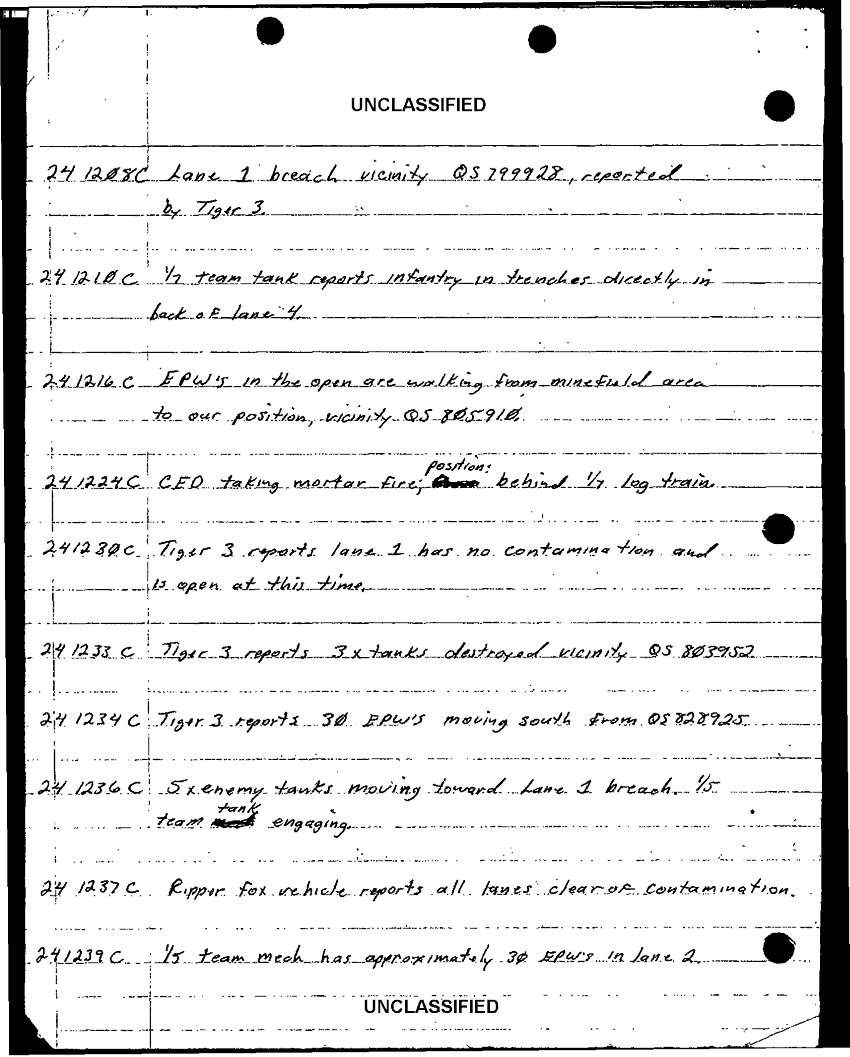 UNCLASSIFIED
24 12Ø8C Lane 1 breach vicinity QS 799928, reported
by Tiger 3.
24 121Ø C 1/7 team tank reports infantry in trenches directly in
back of lane 4.
24 1216 C EPW's in the open are walking from minefield area
to our position, vicinity QS 8Ø591Ø.
position:
24 1224 C CEO taking mortar fire; behind 1/7 log train.
24 123Ø C Tiger 3 reports lane 1 has no contamination and
is open at this time.
24 1233 C Tiger 3 reports 3x tanks destroyed vicinity QS 8Ø3952
24 1234 C Tiger 3 reports 3Ø EPW's moving south from QS 828925.
24 1236 C 5x enemy tanks moving toward Lane 1 breach. 1/5
tank
team engaging.
24 1237 C Ripper fox vehicle reports all lanes clear of contamination.
24 1239 C 1/5 team mech has approximately 3Ø EPW's in lane 2
UNCLASSIFIED